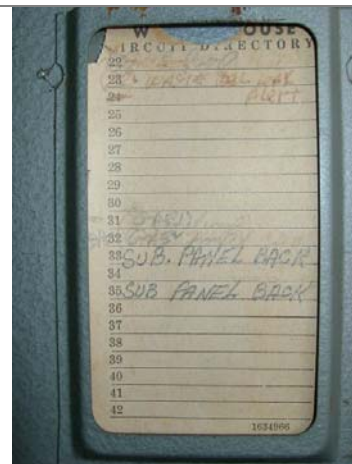 W OUSE
IRCUIT DIRECTORY
22
23 WASTE OIL
24 ALERT
25
26
27
28
29
30
31
32
33 SUB. PANEL BACK
34
35 SUB PANEL BACK
36
37
38
39
40
41
42
1634966